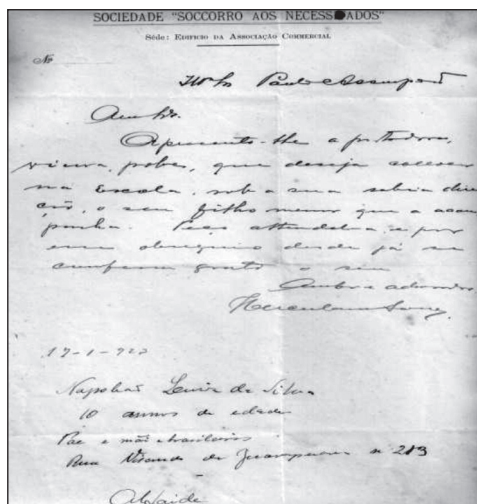 SOCIEDADE "SOCCORRO AOS NECESSADOS"
Séde: EDIFICIO DA ASSOCIAÇÃO COMMERCIAL
Nº
Paulo d'Assumpção
Apresento-lhe a portadora,
viuva, pobre, que deseja collocar
na Escola, sob a sua sabia dire
cção, o seu filho menor que a acom
panha. Peço attendel-a, e por
esse obsequio desde já se
confessa grato o seu
Herculano
17-1-922
Napoleão da Silva
10 annos de edade
Pae e mãe brasileiros
Rua Visconde de Guarapuava n 213